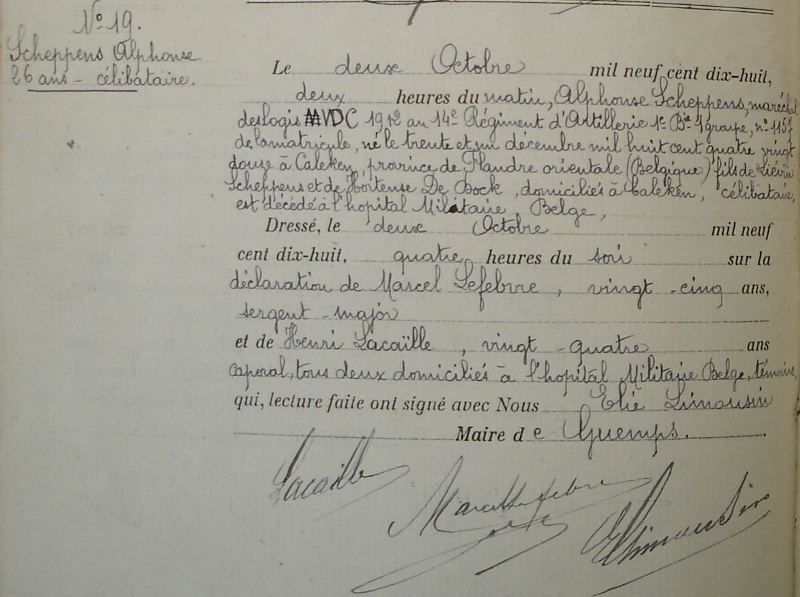 No 19.
Scheppens Alphonse
26 ans - célibataire.
Le deux Octobre mil neuf cent dix-huit,
deux heures du matin, Alphonse Scheppens, maréchal
des logis MVDC 1912 au 14e Régiment d'Artillerie 1e Bie 1 groupe, no 1157
de la matricule, né le trente et un décembre mil huit cent quatre vingt
douse à Caleken, province de Flandre orientale (Belgique) fils de Liévin
Scheppens et de Hortense De Bock, domiciliés à Caleken, célibataire,
est décédé à l'hopital Militaire Belge,
Dressé, le deux Octobre mil neuf
cent dix-huit, quatre heures du soir sur la
déclaration de Marcel Lefebvre, vingt-cinq ans,
sergent-major
et de Henri Lacaille, vingt-quatre ans
caporal, tous deux domiciliés à l'hopital Militaire Belge, témoins,
qui, lecture faite ont signé avec Nous Elie Limousin
Maire de Guemps.
Lacaille
Marcel Lefebvre
E Limousin